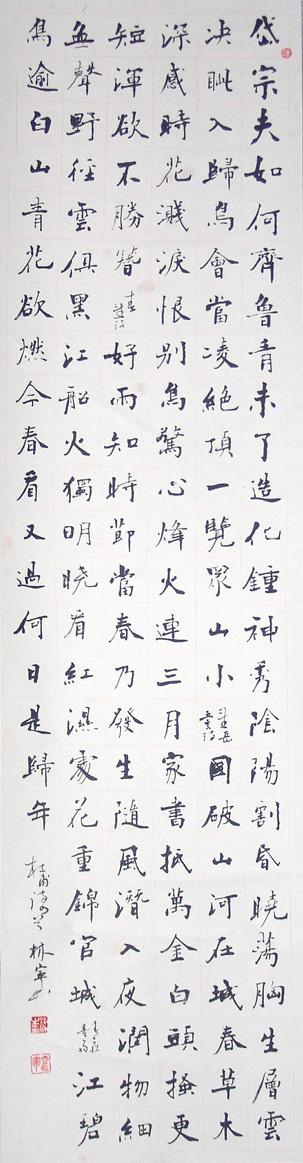 岱宗夫如何齊魯青未了造化鍾神秀陰陽割昏曉蕩胸生層雲
决眦入歸鳥會當凌絕頂一覽眾山小國破山河在城春草木
深感時花濺淚恨別鳥驚心烽火連三月家書抵萬金白頭搔更
短渾欲不勝簪好雨知時節當春乃發生隨風潛入夜潤物細
無聲野徑雲俱黑江船火獨明曉看紅濕處花重錦官城江碧
鳥逾白山青花欲燃今春看又過何日是歸年
杜甫詩四首林寧書